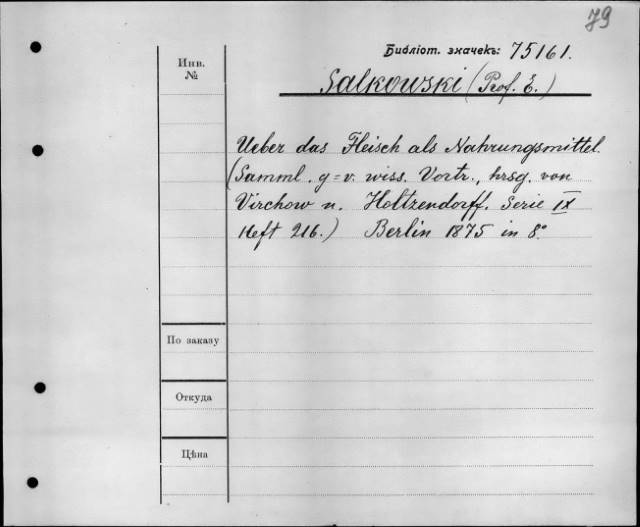 79
Библіот. значекъ: 75161.
Инв.
№
Salkowski (Prof. E.)
Ueber das Fleisch als Nahrungsmittel.
(Samml. g=v. wiss. Vortr., hrsg. von
Virchow u. Holtzendorff. Serie IX
Heft 216.) Berlin 1875 in 8°
По заказу
Откуда
Цѣна